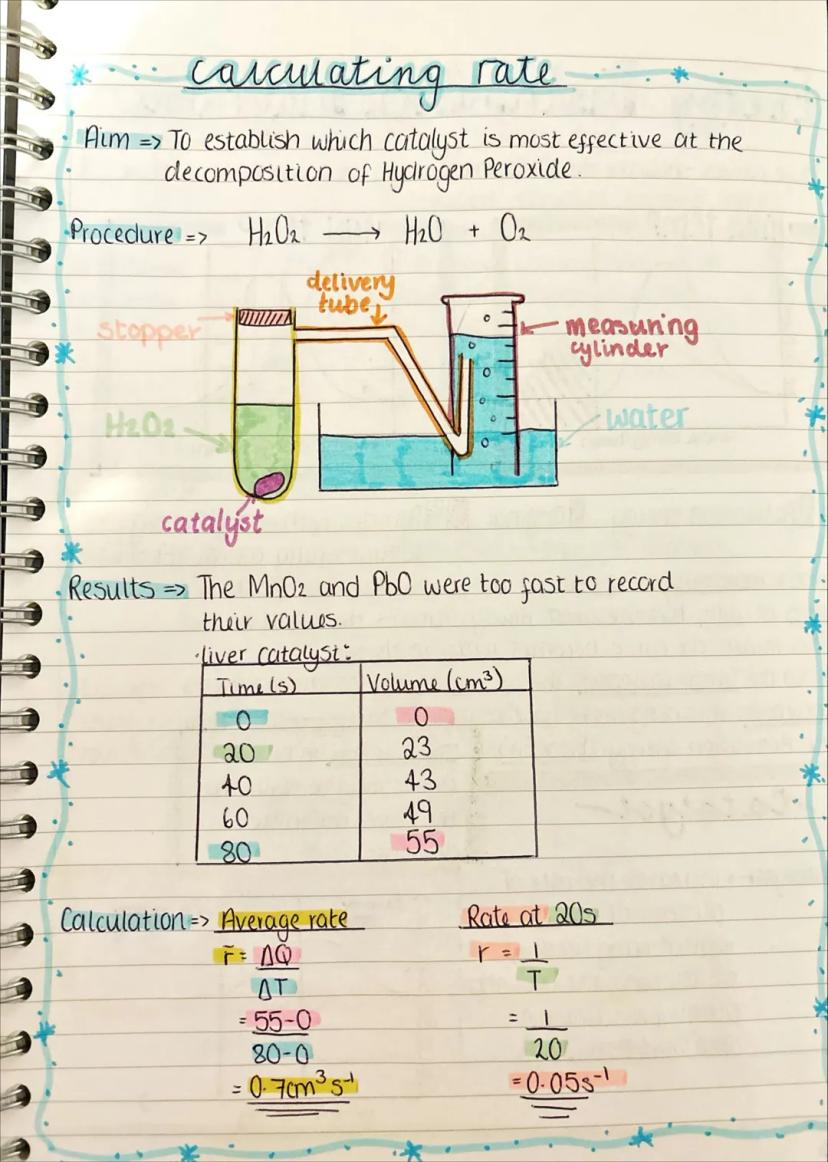 Calculating rate
Aim => To establish which catalyst is most effective at the
decomposition of Hydrogen Peroxide.
Procedure => H₂O₂ ⟶ H₂O + O₂
delivery
tube
stopper
measuring
cylinder
H₂O₂
water
catalyst
Results => The MnO₂ and PbO were too fast to record
their values.
·liver catalyst:
Time (s) Volume (cm³)
0 0
20 23
40 43
60 49
80 55
Calculation => Average rate Rate at 20s
r̄ = ΔQ r = 1
ΔT T
= 55-0 = 1
80-0 20
= 0.7cm³s⁻¹ = 0.05s⁻¹